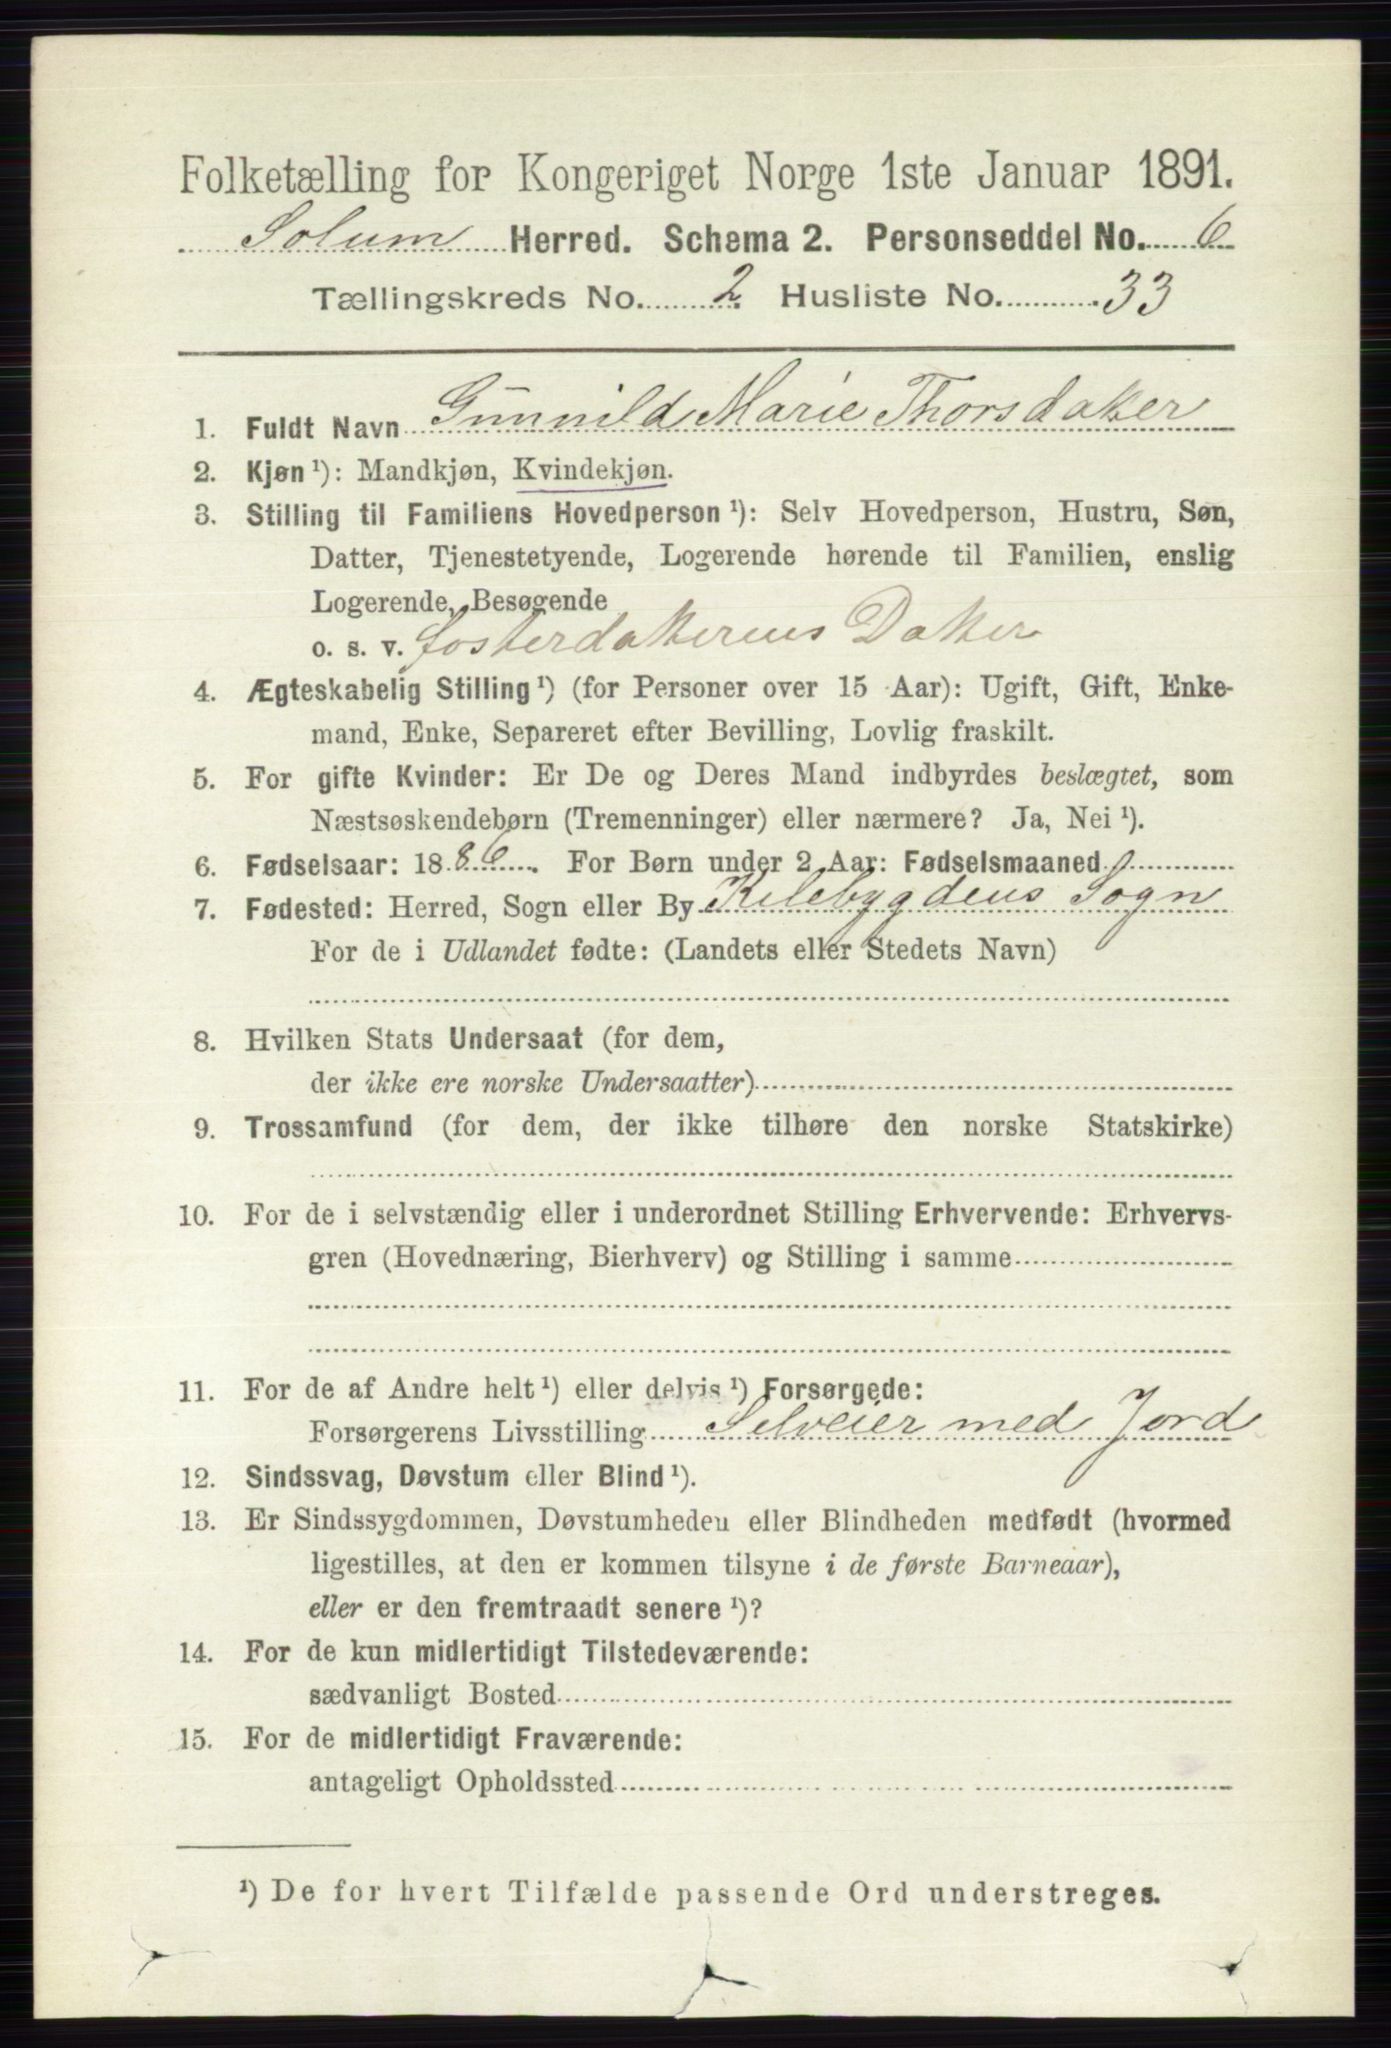 Folketælling for Kongeriget Norge 1ste Januar 1891.
Solum Herred. Schema 2. Personseddel No. 6
Tællingskreds No. 2 Husliste No. 33
1. Fuldt Navn Gunnild Marie Thorsdaker
2. Kjøn ¹): Mandkjøn, Kvindekjøn.
3. Stilling til Familiens Hovedperson ¹): Selv Hovedperson, Hustru, Søn,
Datter, Tjenestetyende, Logerende hørende til Familien, enslig
Logerende, Besøgende
o. s. v. fosterdakerens Daker
4. Ægteskabelig Stilling ¹) (for Personer over 15 Aar): Ugift, Gift, Enke-
mand, Enke, Separeret efter Bevilling, Lovlig fraskilt.
5. For gifte Kvinder: Er De og Deres Mand indbyrdes beslægtet, som
Næstsøskendebørn (Tremenninger) eller nærmere? Ja, Nei ¹).
6. Fødselsaar: 1886. For Børn under 2 Aar: Fødselsmaaned
7. Fødested: Herred, Sogn eller By Kilebygdens Sogn
For de i Udlandet fødte: (Landets eller Stedets Navn)
8. Hvilken Stats Undersaat (for dem,
der ikke ere norske Undersaatter)
9. Trossamfund (for dem, der ikke tilhøre den norske Statskirke)
10. For de i selvstændig eller i underordnet Stilling Erhvervende: Erhvervs-
gren (Hovednæring, Bierhverv) og Stilling i samme
11. For de af Andre helt ¹) eller delvis ¹) Forsørgede:
Forsørgerens Livsstilling Selveier med Jord
12. Sindssvag, Døvstum eller Blind ¹).
13. Er Sindssygdommen, Døvstumheden eller Blindheden medfødt (hvormed
ligestilles, at den er kommen tilsyne i de første Barneaar),
eller er den fremtraadt senere ¹)?
14. For de kun midlertidigt Tilstedeværende:
sædvanligt Bosted
15. For de midlertidigt Fraværende:
antageligt Opholdssted
¹) De for hvert Tilfælde passende Ord understreges.